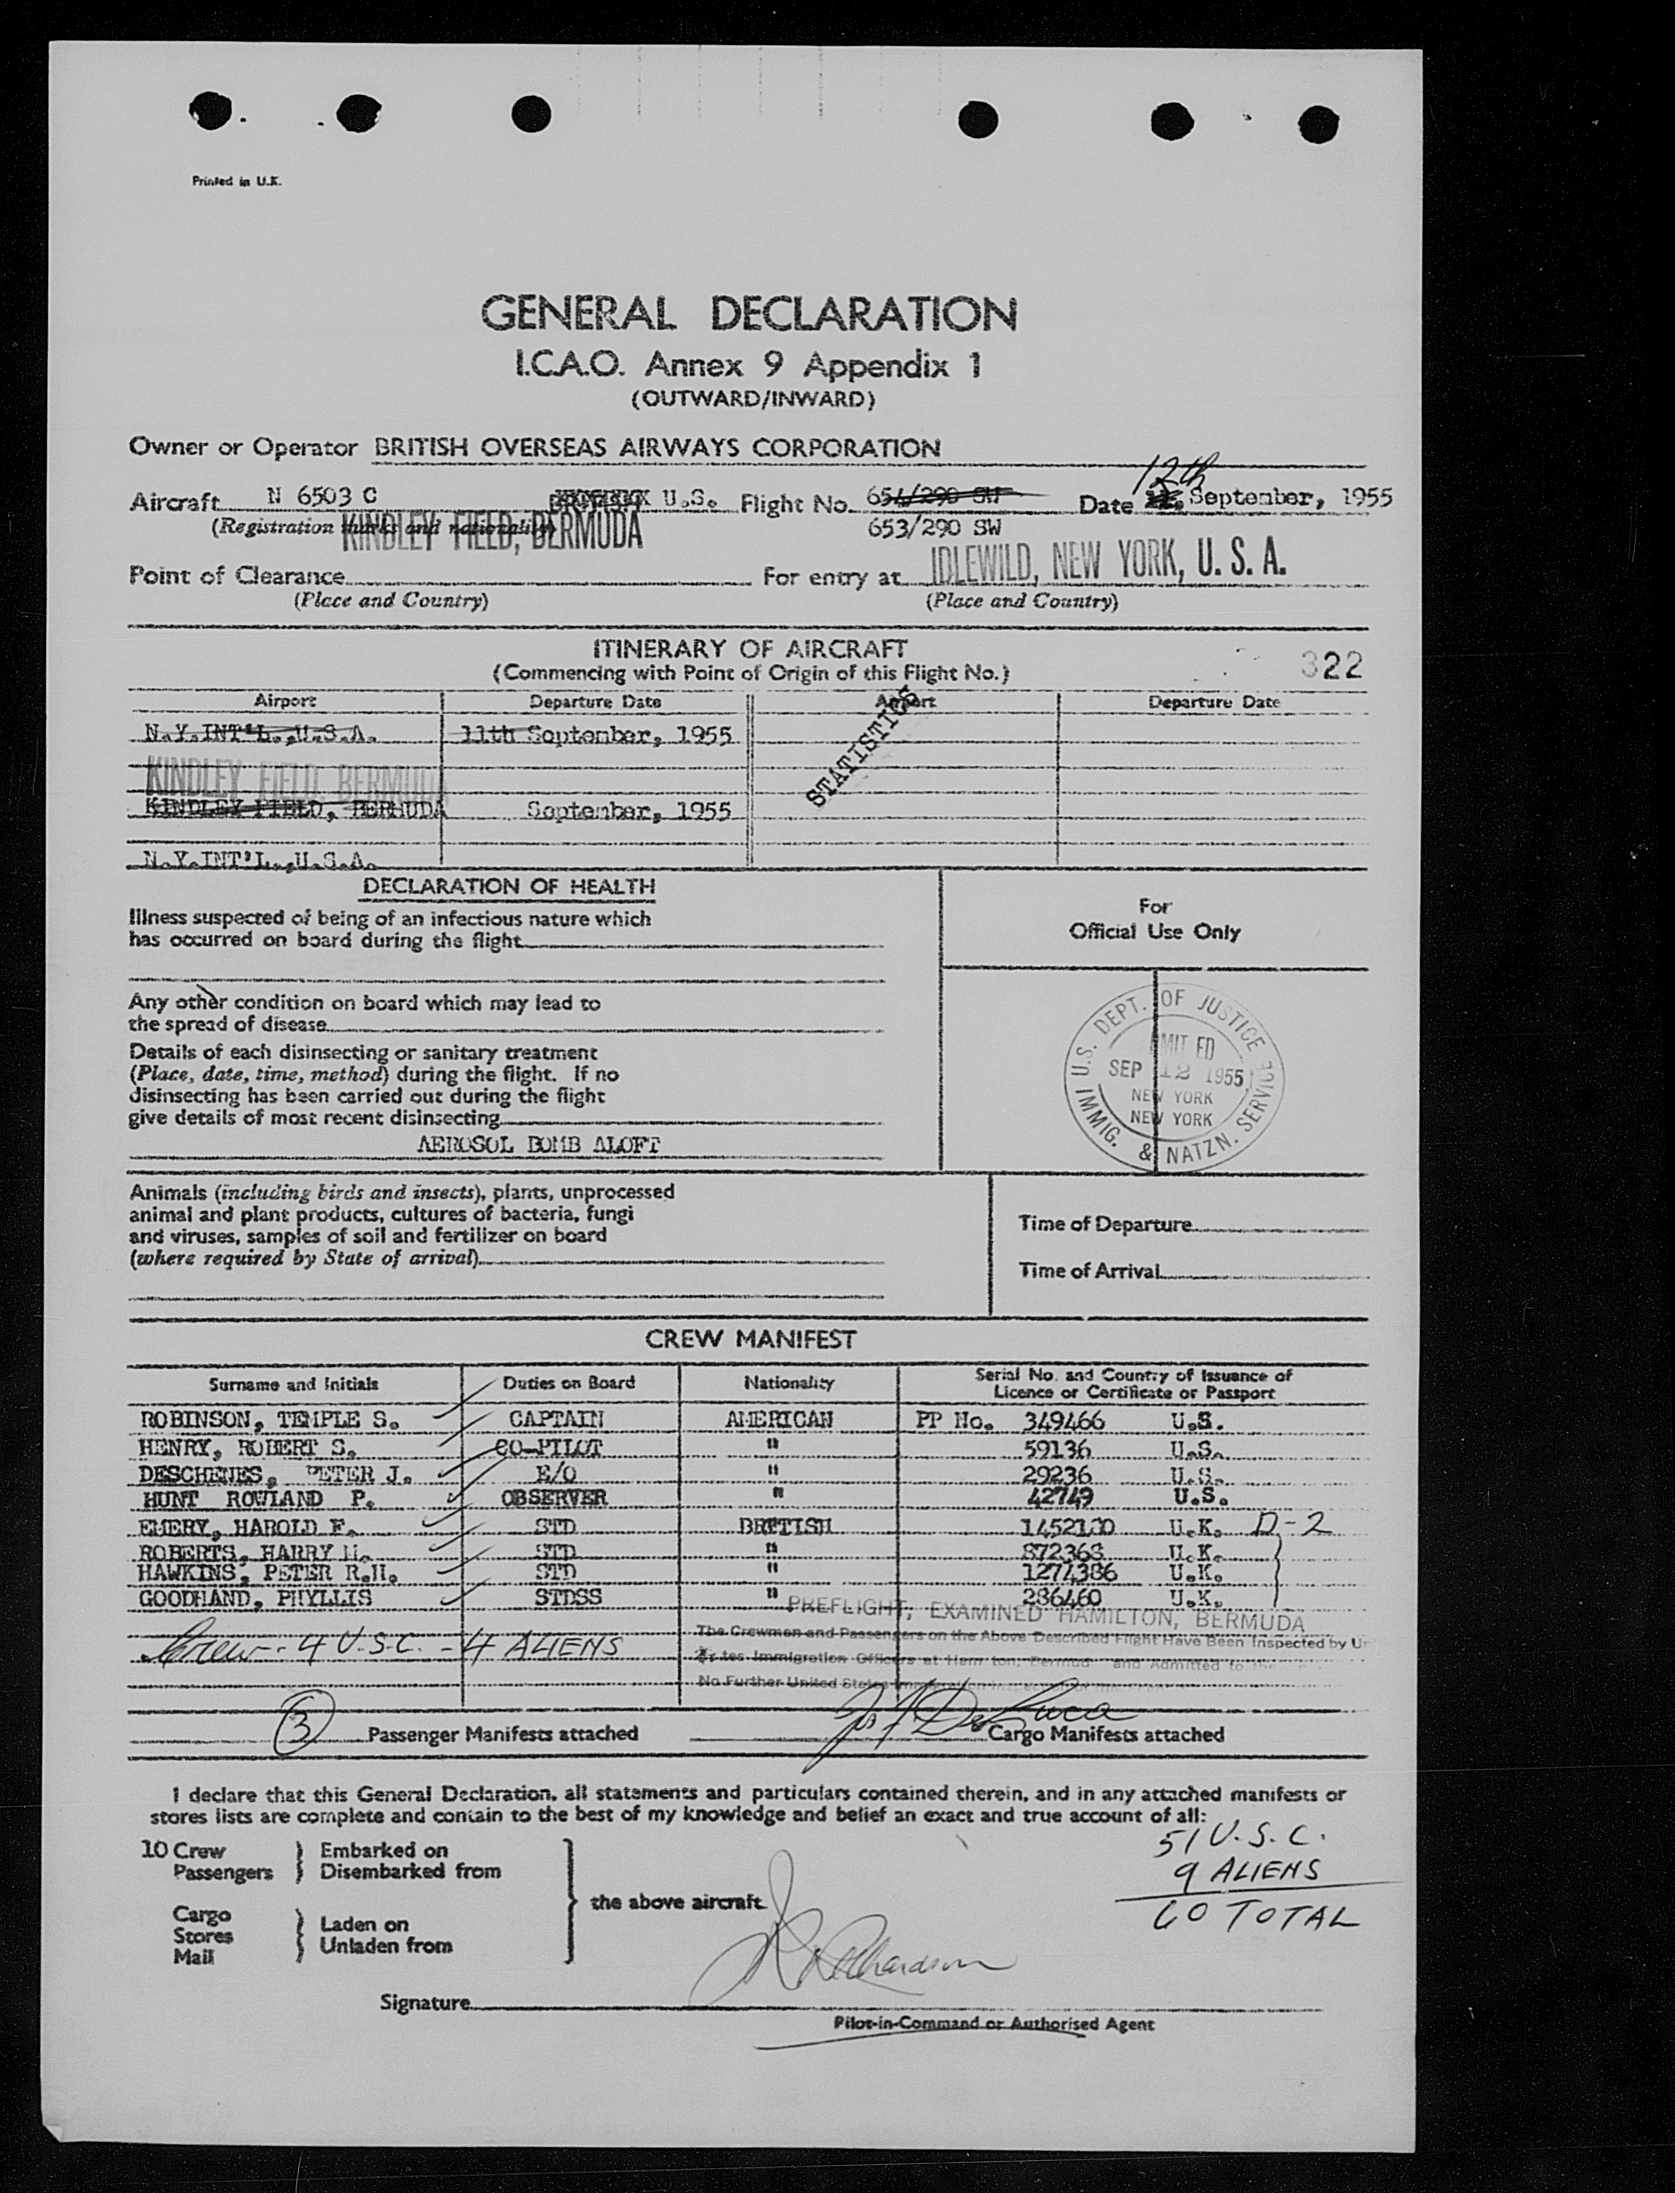 Printed in U.K.
GENERAL DECLARATION
I.C.A.O. Annex 9 Appendix 1
(OUTWARD/INWARD)
Owner or Operator BRITISH OVERSEAS AIRWAYS CORPORATION
12th
Aircraft N 6503 C U.S. Flight No. 654/290 SW Date September, 1955
(Registration marks and nationality) 653/290 SW
KINDLEY FIELD, BERMUDA
IDLEWILD, NEW YORK, U. S. A.
Point of Clearance For entry at
(Place and Country) (Place and Country)
ITINERARY OF AIRCRAFT
(Commencing with Point of Origin of this Flight No.) 322
Airport Departure Date Airport Departure Date
STATISTICS
N.Y.INT'L.,U.S.A. 11th September, 1955
KINDLEY FIELD, BERMUDA
KINDLEY FIELD, BERMUDA September, 1955
N.Y.INT'L.,U.S.A.
DECLARATION OF HEALTH
Illness suspected of being of an infectious nature which
has occurred on board during the flight
For
Official Use Only
Any other condition on board which may lead to
the spread of disease
Details of each disinsecting or sanitary treatment
(Place, date, time, method) during the flight. If no
disinsecting has been carried out during the flight
give details of most recent disinsecting
AEROSOL BOMB ALOFT
U.S. DEPT. OF JUSTICE
SEP 12 1955
NEW YORK
NEW YORK
IMMIG. & NATZN. SERVICE
Animals (including birds and insects), plants, unprocessed
animal and plant products, cultures of bacteria, fungi
and viruses, samples of soil and fertilizer on board
(where required by State of arrival)
Time of Departure
Time of Arrival
CREW MANIFEST
Surname and Initials Duties on Board Nationality Serial No. and Country of Issuance of
Licence or Certificate or Passport
ROBINSON, TEMPLE S. CAPTAIN AMERICAN PP No. 349466 U.S.
HENRY, ROBERT S. CO-PILOT " 59136 U.S.
DESCHENES, PETER J. E/O " 29236 U.S.
HUNT ROWLAND P. OBSERVER " 42749 U.S.
EMERY, HAROLD F. STD BRITISH U.K. D-2
ROBERTS, HARRY STD " 872368 U.K.
HAWKINS, PETER R.H. STD " 1274386 U.K.
GOODHAND, PHYLLIS STDSS " 286460 U.K.
PREFLIGHT, EXAMINED HAMILTON, BERMUDA
Crew - 4 U.S.C. - 4 ALIENS
The Crewmen and Passengers on the Above Described Flight Have Been Inspected by
Immigration Officers at and Admitted to the
No Further United States
3 Passenger Manifests attached Cargo Manifests attached
I declare that this General Declaration, all statements and particulars contained therein, and in any attached manifests or
stores lists are complete and contain to the best of my knowledge and belief an exact and true account of all:
10 Crew } Embarked on
Passengers } Disembarked from
the above aircraft
Cargo
Stores } Laden on
Mail } Unladen from
51 U.S.C.
9 ALIENS
60 TOTAL
Signature
Pilot-in-Command or Authorised Agent